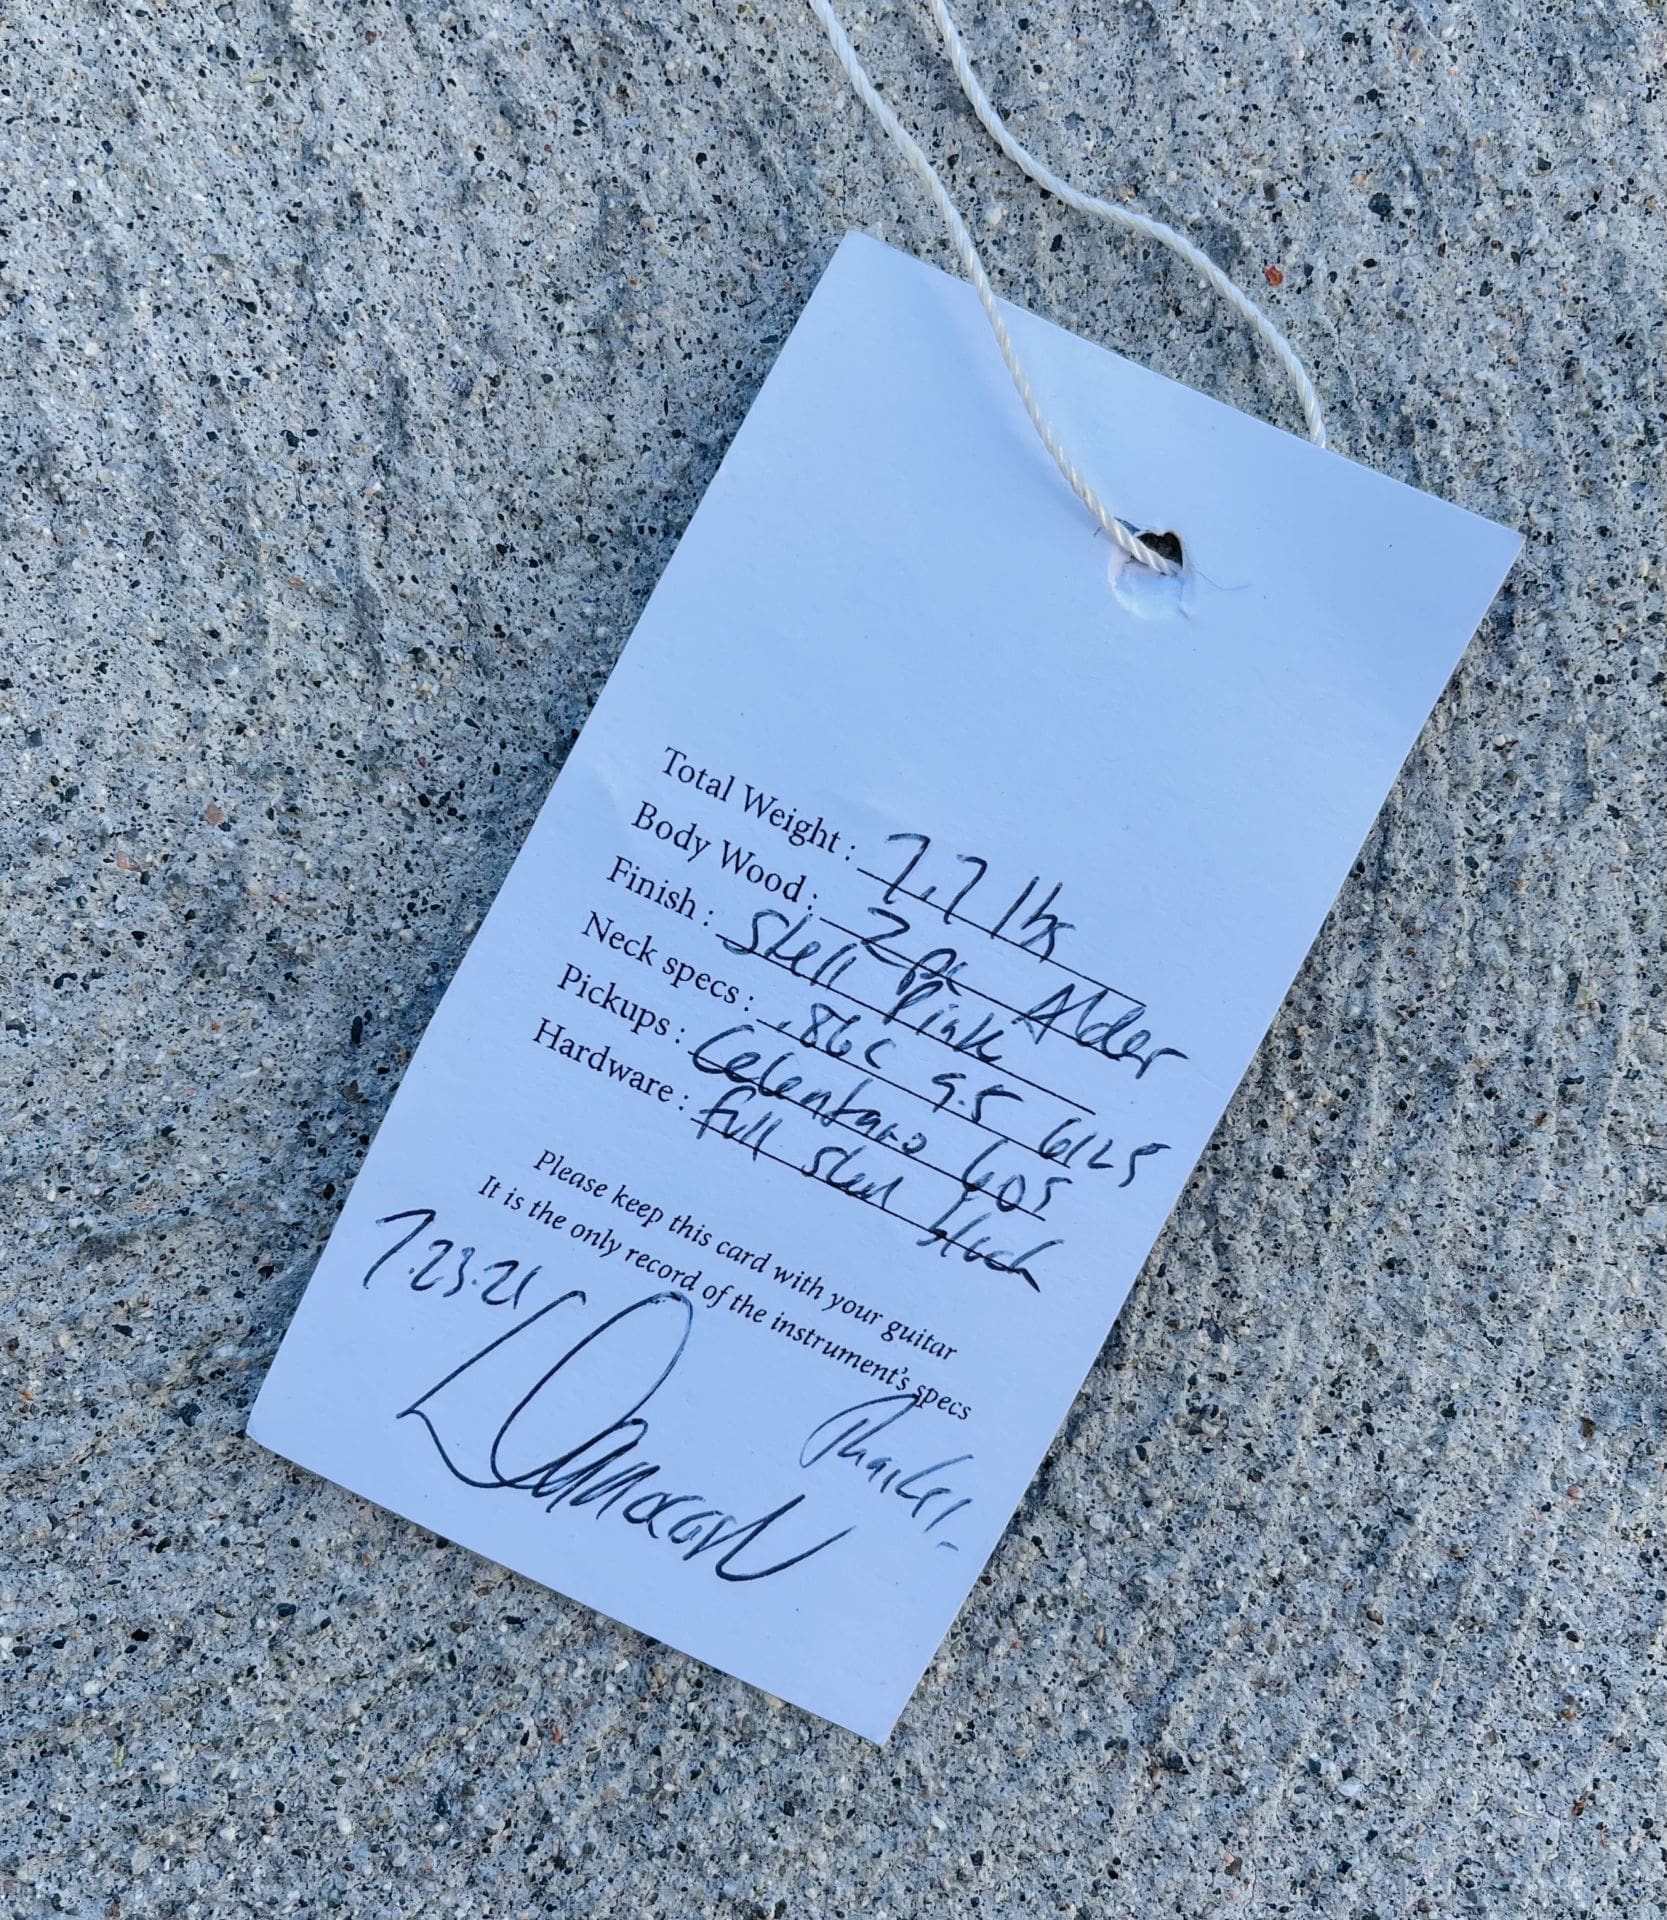 Total Weight : 7.7 lbs
Body Wood : 2 pc Alder
Finish : Shell Pink
Neck specs : .86 C 9.5 6125
Pickups : Celentano 60s
Hardware : full steel block
Please keep this card with your guitar
It is the only record of the instrument's specs
7.23.21
Thanks!